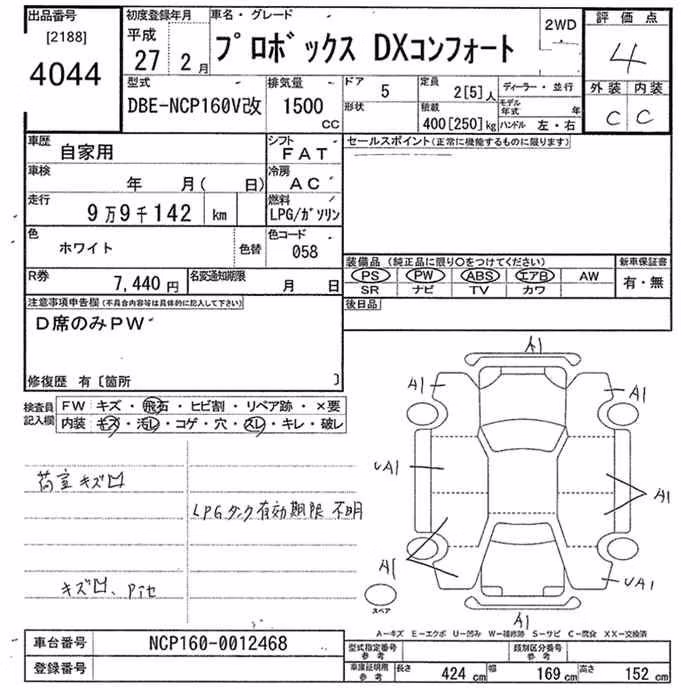 出品番号
[2188]
4044
初度登録年月
平成
27 2月
車名・グレード
プロボックス DXコンフォート
2WD
評価点
4
型式
DBE-NCP160V改
排気量
1500
CC
ドア
5
形状
定員
2[5]人
積載
400[250]kg
ディーラー・並行
モデル年式 年
ハンドル 左・右
外装 内装
C C
車歴
自家用
シフト
FAT
セールスポイント(正常に機能するものに限ります)
車検
年 月( 日)
冷房
AC
走行
9万9千142 km
燃料
LPG/ガソリン
色
ホワイト
色替
色コード
058
装備品(純正品に限り〇をつけてください)
新車保証書
PS PW ABS エアB AW
SR ナビ TV カワ
有・無
R券
7,440円
名変通知期限
月 日
後日品
注意事項申告欄(不具合内容等は具体的に記入して下さい)
D席のみPW
修復歴 有〔箇所 〕
検査員記入欄
FW キズ・飛石・ヒビ割・リペア跡・×要
内装 キズ・汚レ・コゲ・穴・スレ・キレ・破レ
荷室キズ凹
LPGタンク有効期限 不明
キズ凹、
A1
A1
A1
UA1
A1
A1
UA1
A1
スペア
A-キズ E-エクボ U-凹み W-補修跡 S-サビ C-腐食 XX-交換済
車台番号
NCP160-0012468
型式指定番号
参考
類別区分番号
参考
登録番号
車庫証明用
参考
長さ 424 cm
幅 169 cm
高さ 152 cm